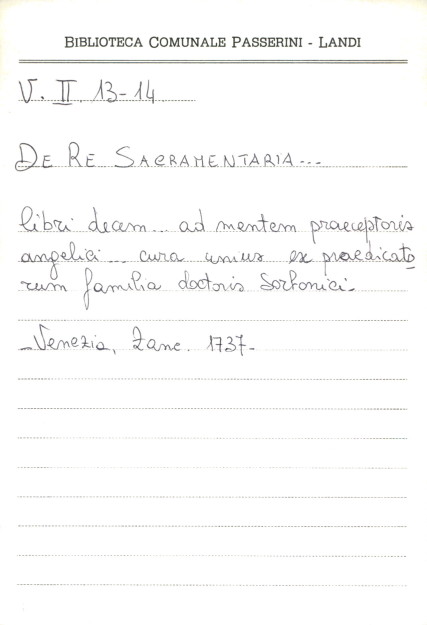 BIBLIOTECA COMUNALE PASSERINI - LANDI
V. II. 13-14
DE RE SACRAMENTARIA...
libri decem... ad mentem praeceptoris
angelici... cura unius ex praedicato
rum familia doctoris Sorbonici-
-Venezia, Zane. 1737-